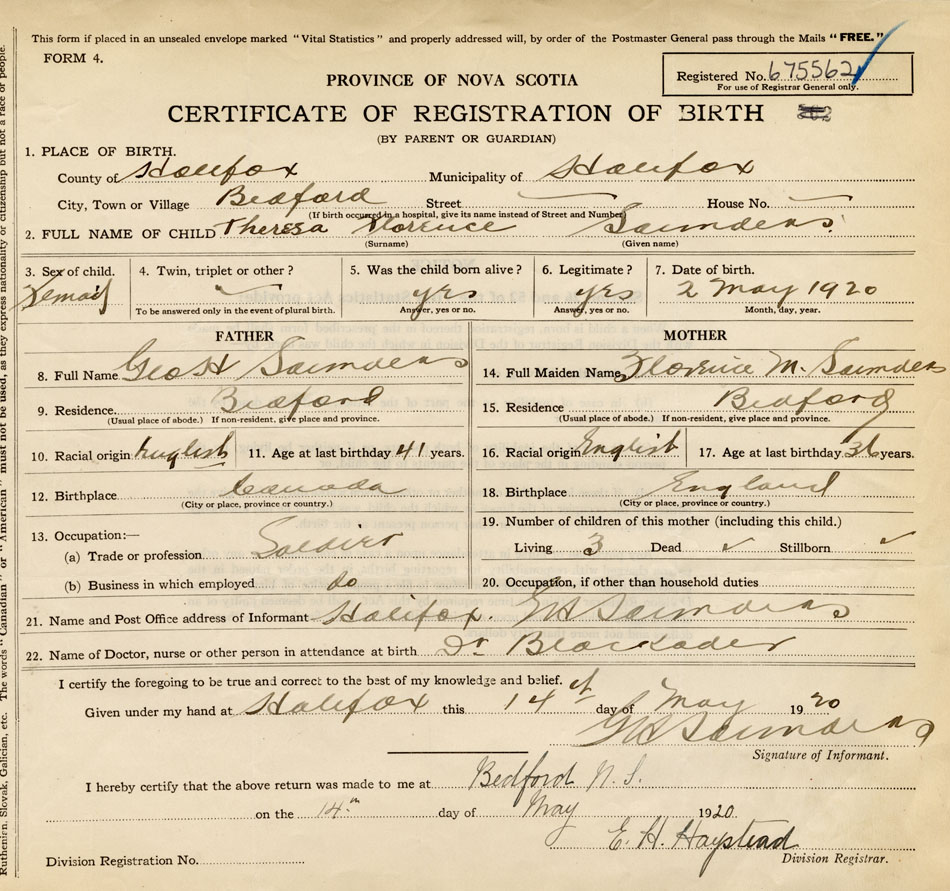 This form if placed in an unsealed envelope marked "Vital Statistics" and properly addressed will, by order of the Postmaster General pass through the Mails "FREE."
FORM 4.
Registered No. 675562
For use of Registrar General only.
PROVINCE OF NOVA SCOTIA
CERTIFICATE OF REGISTRATION OF BIRTH
(BY PARENT OR GUARDIAN)
1. PLACE OF BIRTH.
County of Halifax Municipality of Halifax
City, Town or Village Bedford Street House No.
(If birth occurred in a hospital, give its name instead of Street and Number)
2. FULL NAME OF CHILD Theresa Florence Saunders
(Surname) (Given name)
3. Sex of child. 4. Twin, triplet or other? 5. Was the child born alive? 6. Legitimate? 7. Date of birth.
yes yes 2 May 1920
To be answered only in the event of plural birth. Answer, yes or no. Answer, yes or no. Month, day, year.
FATHER
8. Full Name Geo H Saunders
9. Residence. Bedford
(Usual place of abode.) If non-resident, give place and province.
10. Racial origin English 11. Age at last birthday 41 years.
12. Birthplace Canada
(City or place, province or country.)
13. Occupation:—
(a) Trade or profession Soldier
(b) Business in which employed do
MOTHER
14. Full Maiden Name Florence M. Saunders
15. Residence Bedford
(Usual place of abode.) If non-resident, give place and province.
16. Racial origin English 17. Age at last birthday 36 years.
18. Birthplace England
(City or place, province or country.)
19. Number of children of this mother (including this child.)
Living 3 Dead ✓ Stillborn ✓
20. Occupation, if other than household duties
21. Name and Post Office address of Informant Halifax. GH Saunders
22. Name of Doctor, nurse or other person in attendance at birth Dr Blackader
I certify the foregoing to be true and correct to the best of my knowledge and belief.
Given under my hand at Halifax this 14 day of May 1920
GH Saunders
Signature of Informant.
I hereby certify that the above return was made to me at Bedford N.S.
on the 14th day of May 1920.
E. H. Haystead
Division Registration No. Division Registrar.
Ruthenien, Slovak, Galician, etc. The words "Canadian" or "American" must not be used, as they express nationality or citizenship but not a race or people.